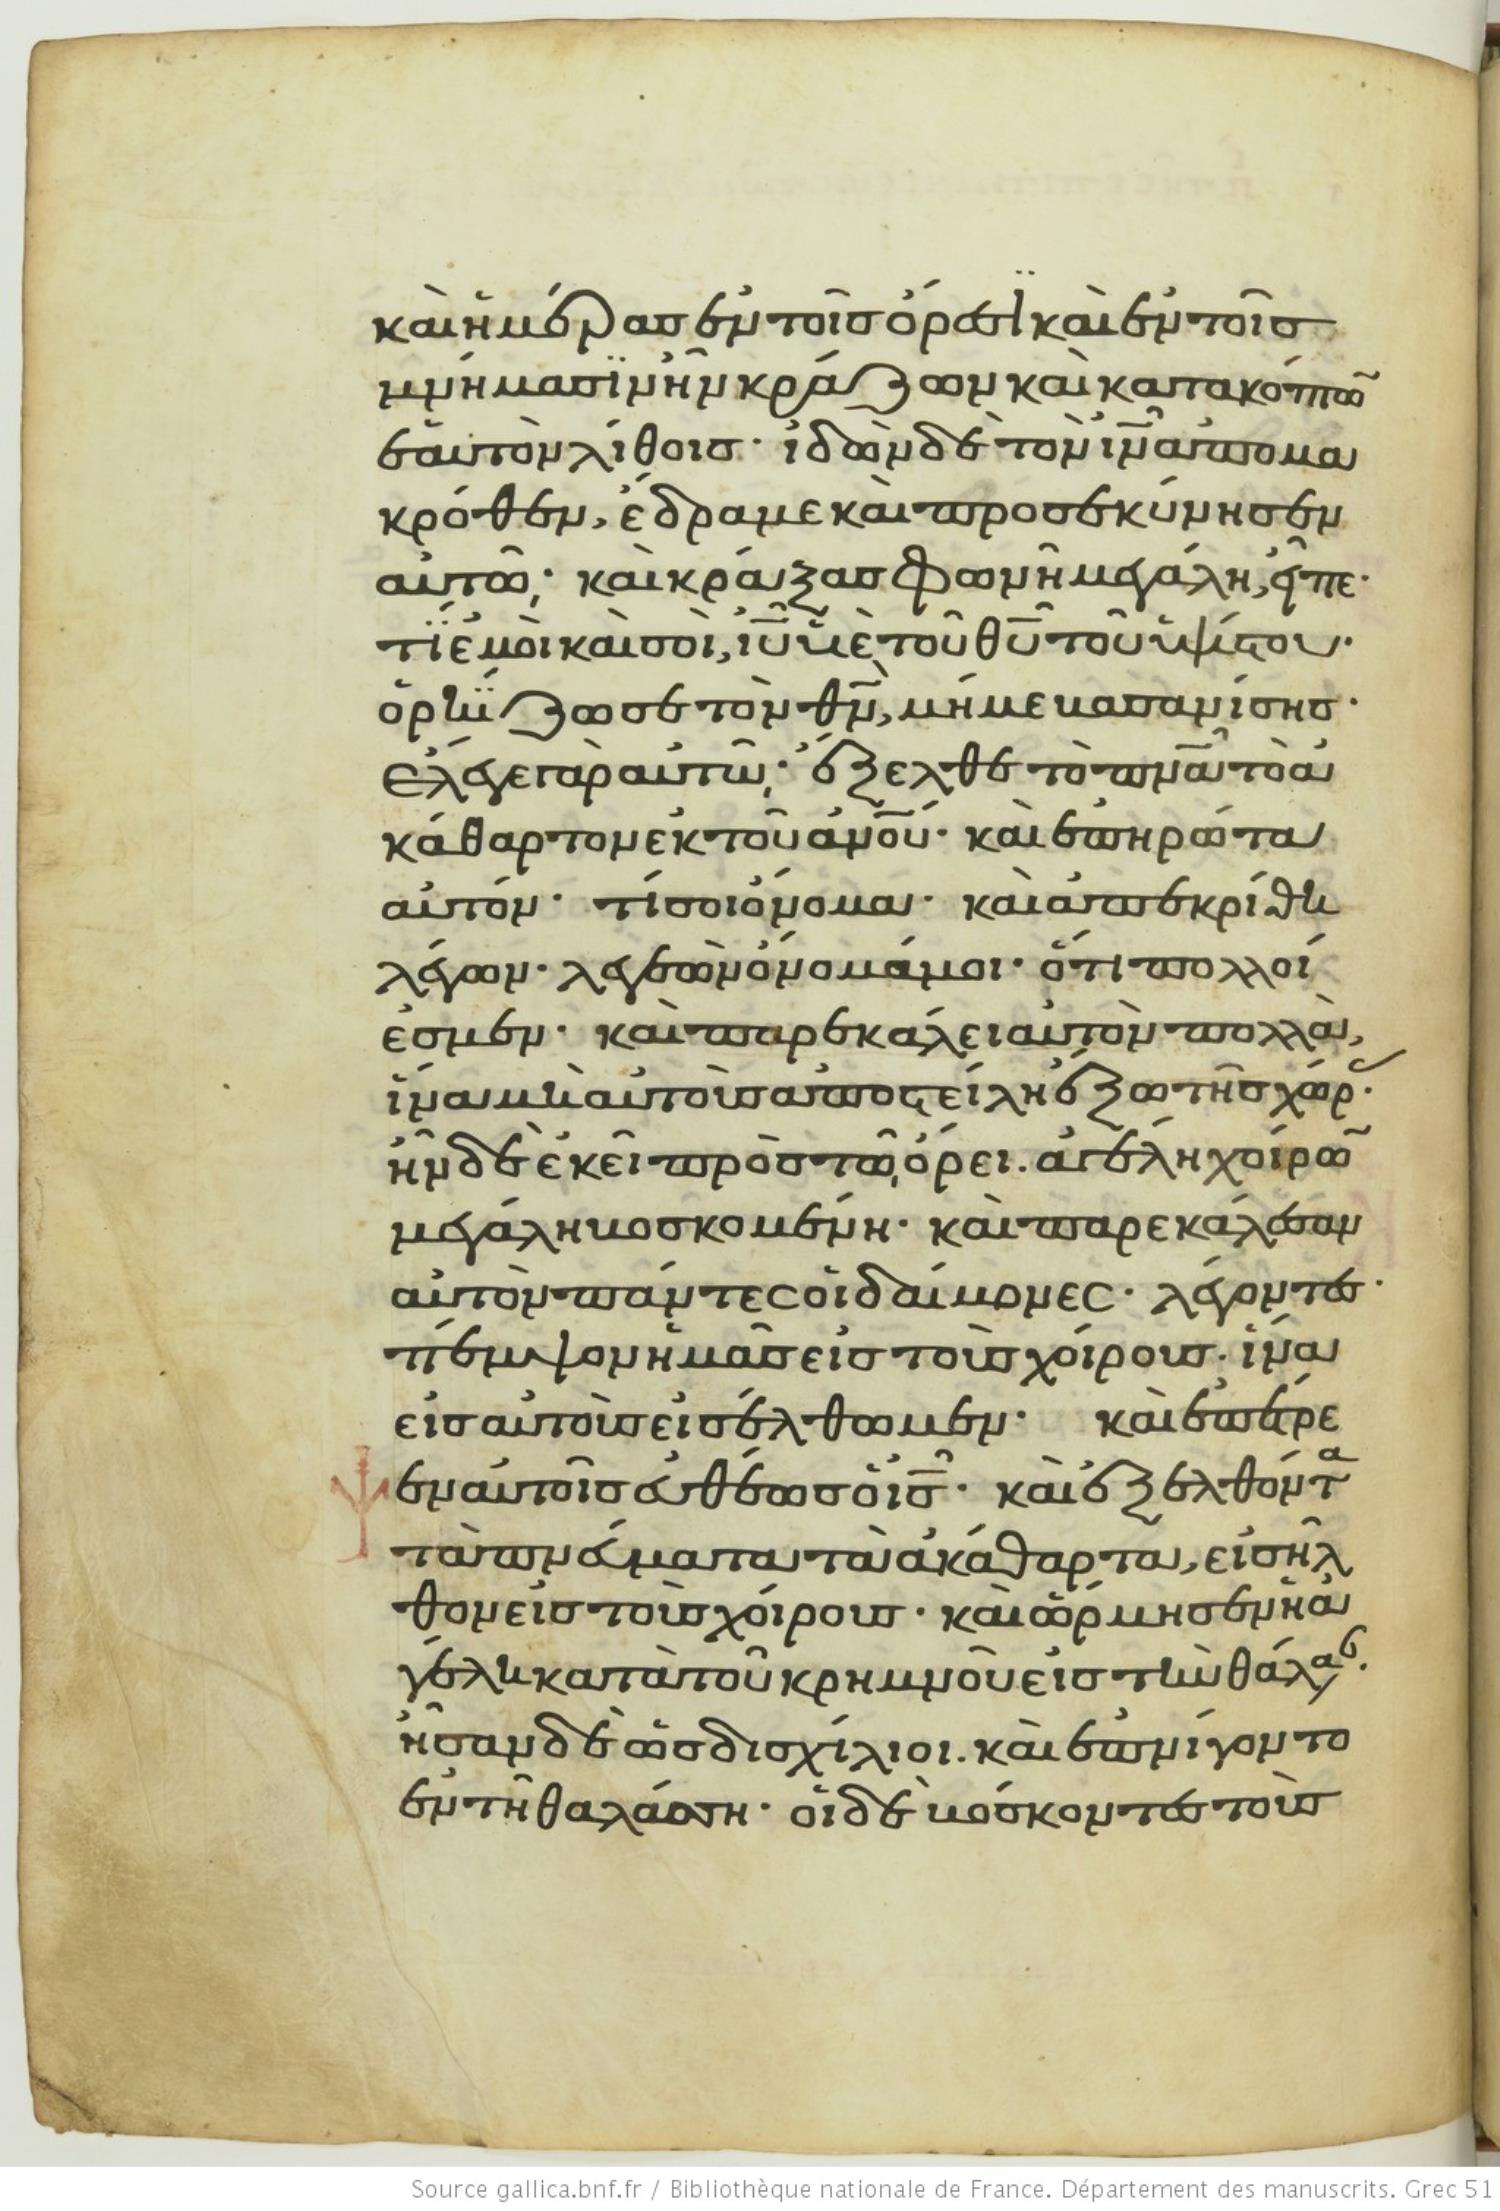 καὶ ἡμέρας ἐν τοῖς ὄρεσϊ καὶ ἐν τοῖς
μνήμασϊ ἦν κράζων καὶ κατακόπτω̅
ἑαυτὸν λίθοις· ἰδὼν δὲ τὸν ιν̅ ἀπομα
κρόθεν, ἔδραμε καὶ προσεκύνησεν
αὐτῶ· καὶ κράξας φωνῆ μεγάλη, εἶπε·
τΐ ἐμοὶ καὶ σοὶ, ιυ̅ υἱὲ τοῦ θυ̅ τοῦ ὑψίστου·
ὁρκΐζω σε τὸν θν̅, μή με βασανίσης·
ἔλεγε γὰρ αὐτῶ· ἔξελθε τὸ πνα̅ τὸ ἀ
κάθαρτον ἐκ τοῦ ανου̅· καὶ ἐπηρώτα
αὐτόν· τί σοι ὄνομα· καὶ ἀπεκρίθη
λέγων· λεγεὼν ὄνομά μοι· ὅτι πολλοί
ἐσμεν· καὶ παρεκάλει αὐτὸν πολλὰ,
ἵνα μὴ αὐτοὺς ἀποστείλη ἔξω τῆς χώρ·
ἦν δὲ ἐκεῖ πρὸς τῶ ὄρει. ἀγέλη χοίρω̅
μεγάλη βοσκομένη· καὶ παρεκάλεσαν
αὐτὸν πάντες οἱ δαίμονες· λέγοντες·
πέμψον ἡμᾶς εἰς τοὺς χοίρους· ἵνα
εἰς αὐτοὺς εἰσέλθωμεν· καὶ ἐπέτρε
ψεν αὐτοῖς εὐθέως ὁ ις̅· καὶ ἐξελθόντα
τὰ πνεύματα τὰ ἀκάθαρτα, εἰσῆλ
θον εἰς τοὺς χοίρους· καὶ ὥρμησεν ἡ ἀ
γέλη κατὰ τοῦ κρημνοῦ εἰς τὴν θάλασ.
ἦσαν δὲ ὡς δισχίλιοι. καὶ ἐπνίγοντο
ἐν τῆ θαλάσση· οἱ δὲ βόσκοντες τοὺς
Source gallica.bnf.fr / Bibliothèque nationale de France. Département des manuscrits. Grec 51